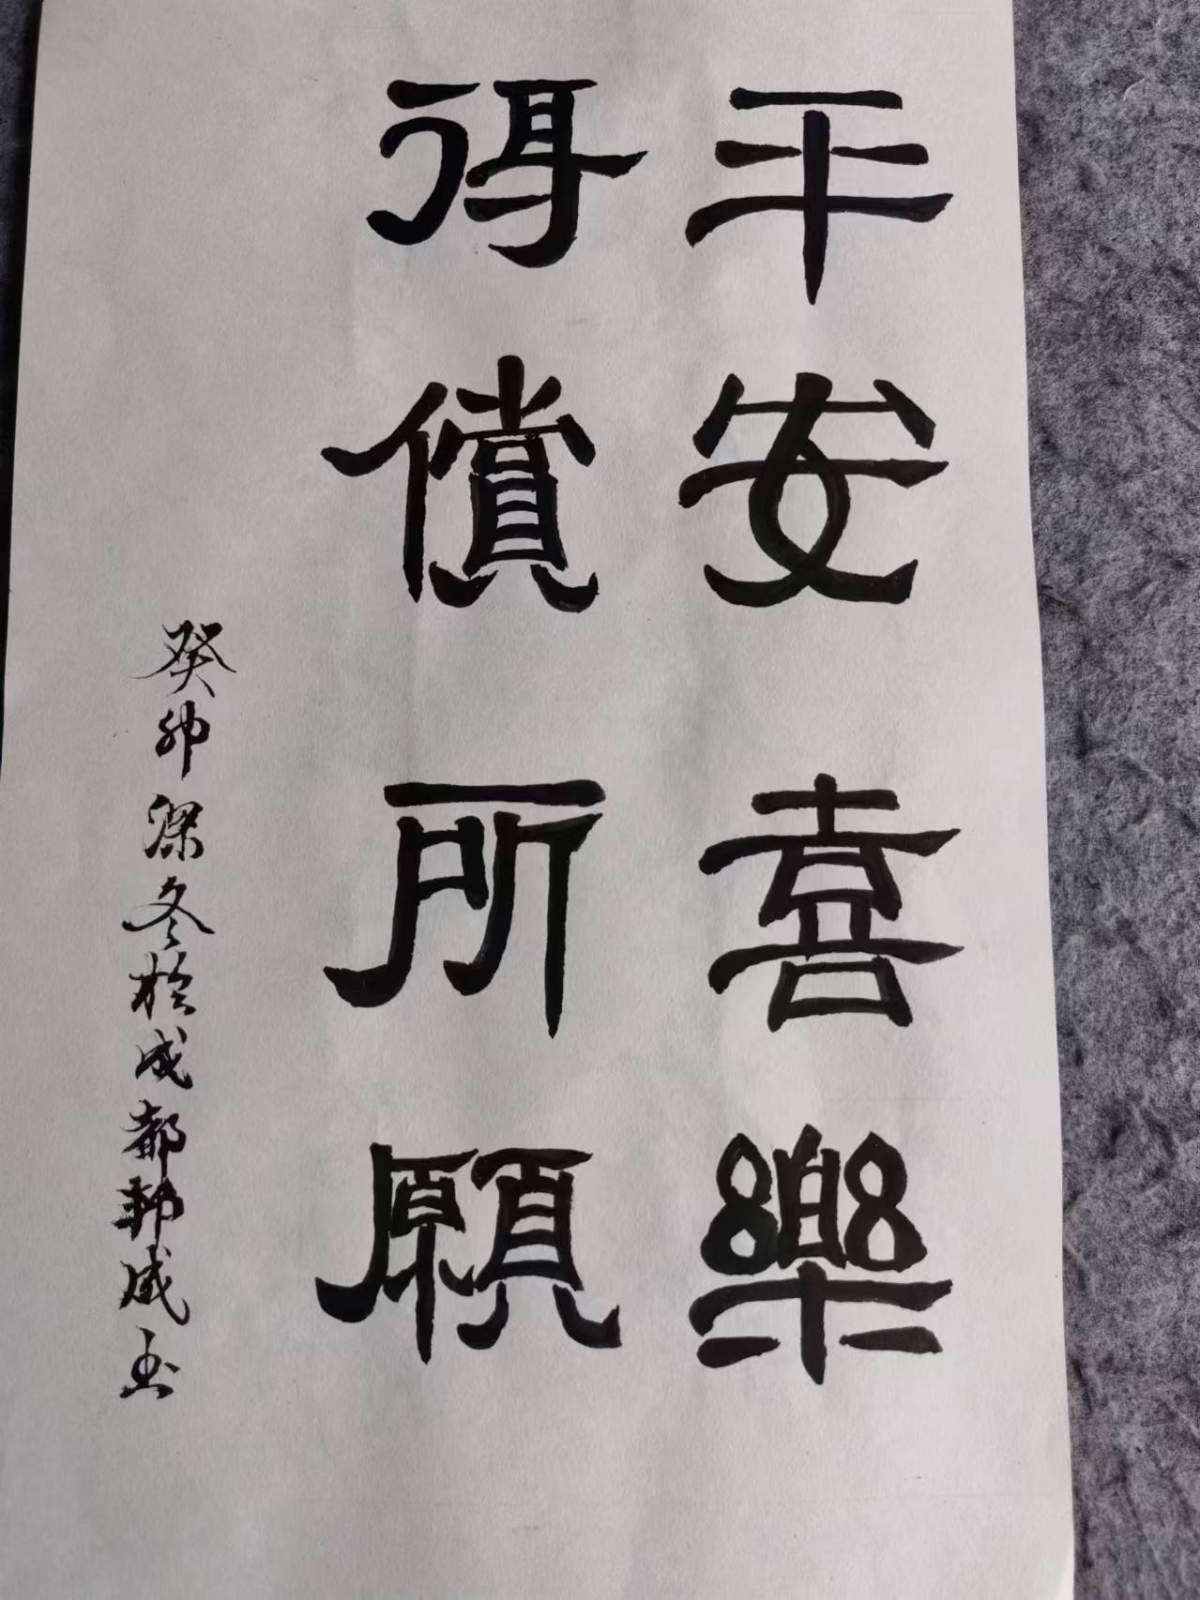 平安喜樂
得償所願
癸卯深冬於成都郭成玉